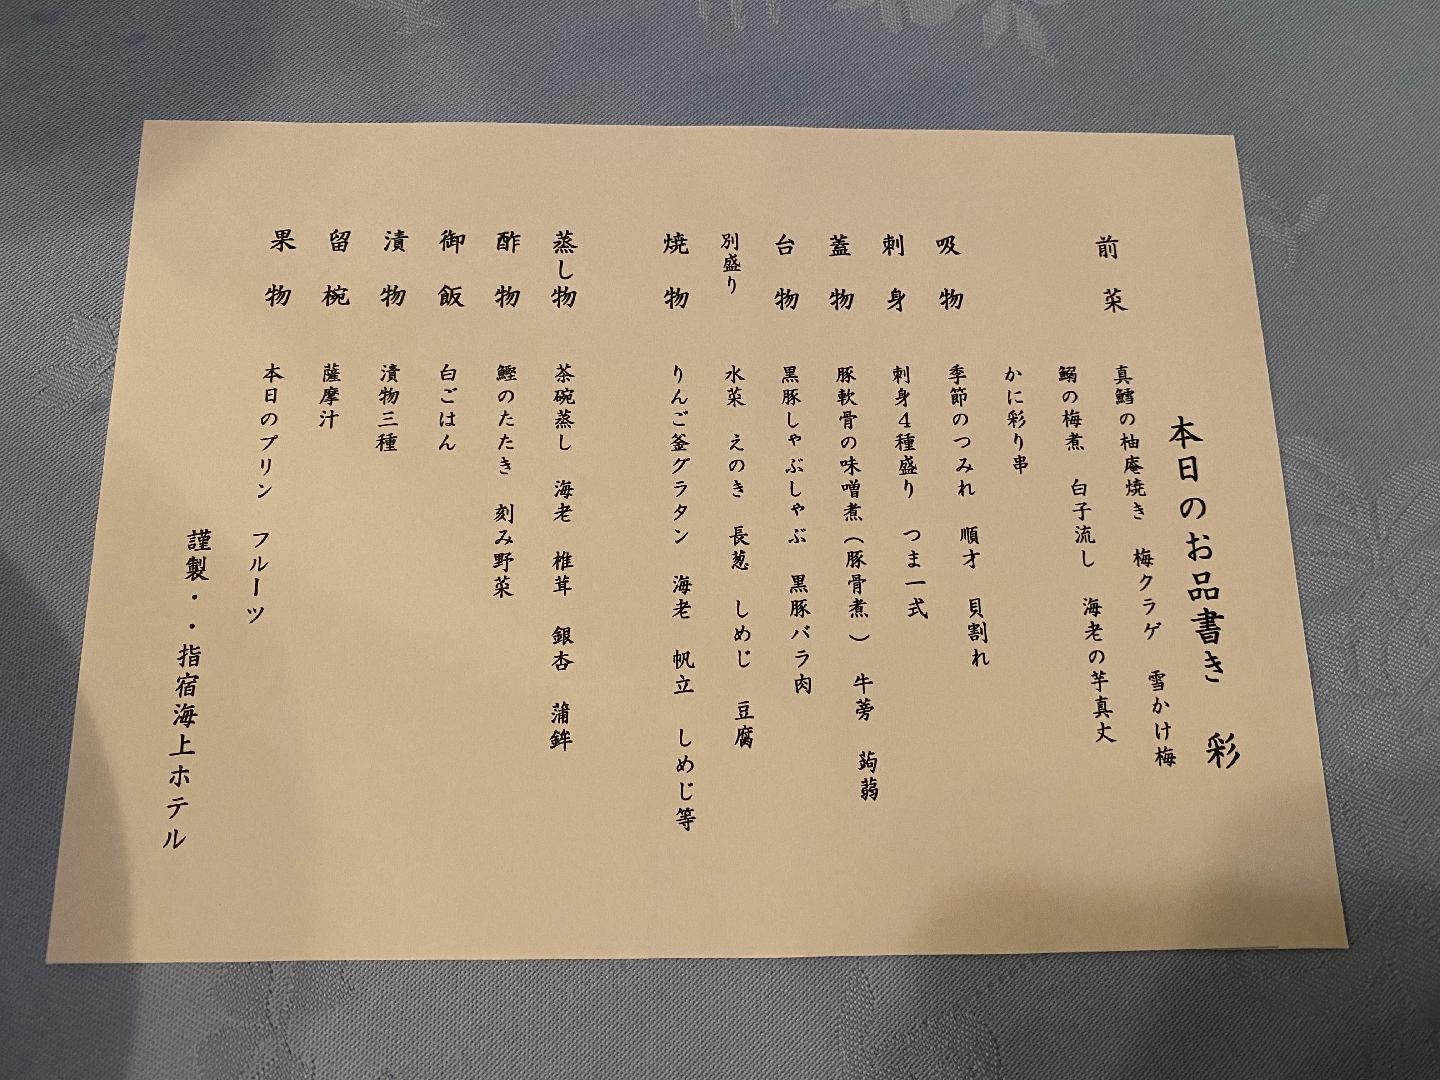 本日のお品書き　彩
前菜　真鱈の柚庵焼き　梅クラゲ　雪かけ梅
鰯の梅煮　白子流し　海老の芋真丈
かに彩り串
吸物　季節のつみれ　順才　貝割れ
刺身　刺身４種盛り　つま一式
蓋物　豚軟骨の味噌煮（豚骨煮）　牛蒡　蒟蒻
台物　黒豚しゃぶしゃぶ　黒豚バラ肉
別盛り　水菜　えのき　長葱　しめじ　豆腐
焼物　りんご釜グラタン　海老　帆立　しめじ等
蒸し物　茶碗蒸し　海老　椎茸　銀杏　蒲鉾
酢物　鰹のたたき　刻み野菜
御飯　白ごはん
漬物　漬物三種
留椀　薩摩汁
果物　本日のプリン　フルーツ
謹製・・指宿海上ホテル